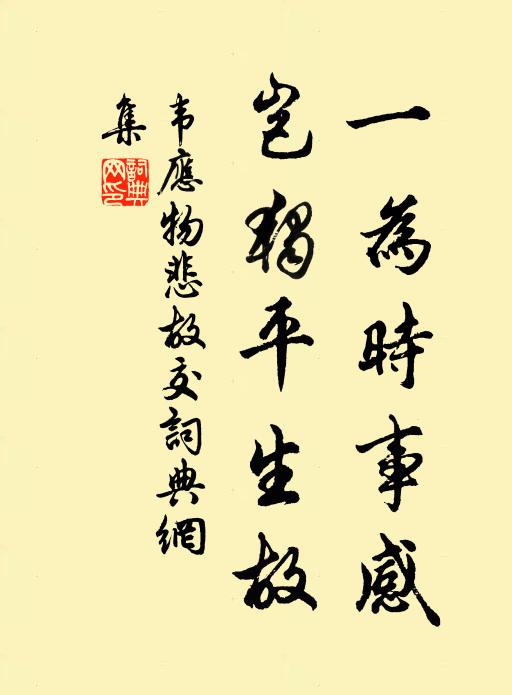 一為時事感
豈獨平生故
韦應物悲故交詞典網
集
詞典
网印